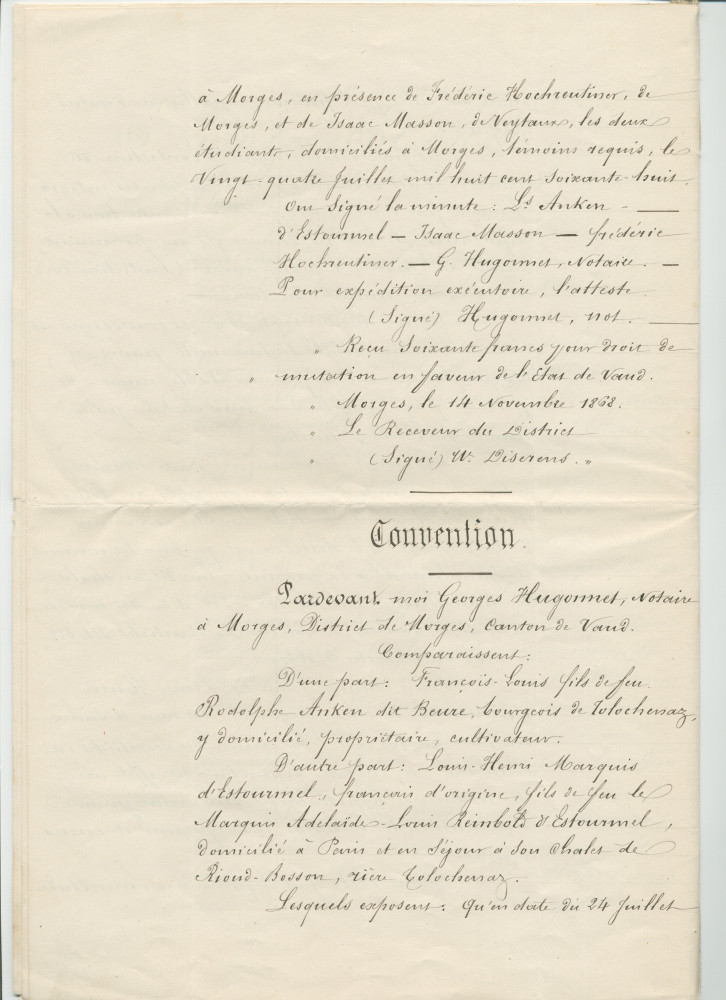 à Morges, en présence de Frédéric Hochreutiner, de
Morges, et de Isaac Masson, de Veytaux, les deux
étudiants, domiciliés à Morges, témoins requis, le
Vingt-quatre Juillet mil huit cent soixante-huit.
Ont signé la minute: Ls Anken -
d'Estourmel - Isaac Masson - frédéric
Hochreutiner. - G. Hugonnet, Notaire. -
Pour expédition exécutoire, l'atteste
(Signé) Hugonnet, not.
" Reçu Soixante francs pour droit de
" mutation en faveur de l'Etat de Vaud.
" Morges, le 14 Novembre 1868.
" Le Receveur du District
" (Signé) W. Diserens. "
Convention.
Pardevant moi Georges Hugonnet, Notaire
à Morges, District de Morges, Canton de Vaud.
Comparaissent:
D'une part: François-Louis fils de feu
Rodolphe Anken dit Beure, bourgeois de Tolochenaz,
y domicilié, propriétaire, cultivateur.
D'autre part: Louis-Henri Marquis
d'Estourmel, français d'origine, fils de feu le
Marquis Adélaïde-Louis Reimbold d'Estourmel,
domicilié à Paris et en Séjour à son chalet de
Rioud-Bosson, rière Tolochenaz.
Lesquels exposent: Qu'en date du 24 Juillet